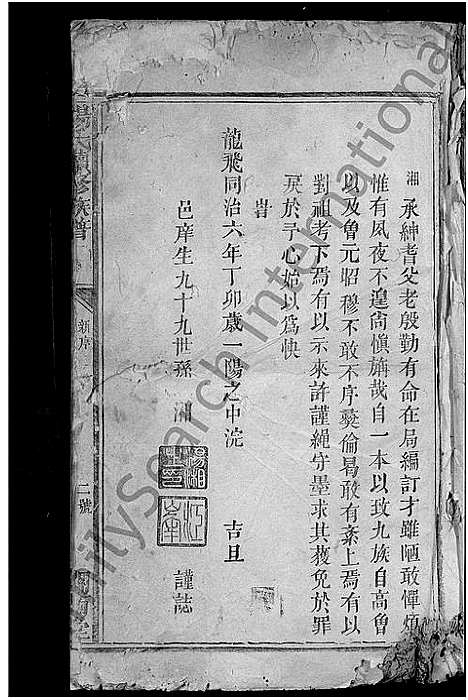 湘承紳耆父老殷勤有命在局編訂才雖陋敢憚煩
惟有夙夜不遑尚慎旃哉自一本以致九族自高曾
以及曾元昭穆不敢不序彝倫曷敢有紊上焉有以
對祖考下焉有以示來許謹繩守墨求其獲免於罪
戾於予心始以為快
旹
龍飛同治六年丁卯歲一陽之中浣
吉旦
邑庠生九十九世孫 湘
謹誌
族譜
新序
二號
FamilySearch International